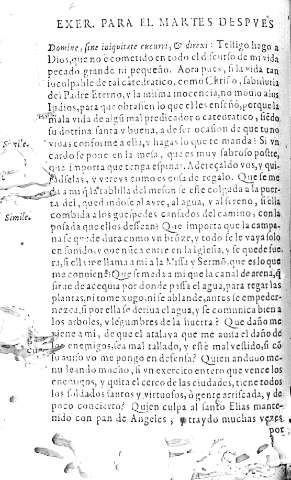 EXER. PARA EL MARTES DESPVES
Domine, sine iniquitate cucurri, & direxi: Testigo hago a
Dios, que no e cometido en todo el discurso de mi vida
pecado grande ni pequeño. Aora pues, si la vida tan
inculpable de tal catedratico, como Christo, sabiduria
del Padre Eterno, y la misma inocencia, no mouio a los
Iudios, para que obrassen lo que el les enseñò, porque la
mala vida de algũ mal predicador o catedratico, siẽdo
su dotrina santa y buena, a de ser ocasion de que tu no
viuas conforme a ella, y hagas lo que te manda? Si vn
Simile.
cardo se pone en la mesa, que es muy sabroso postre,
que importa que tenga espinas? Adereçaldo vos, y qui-
tadselas, y vereys como es cosa de regalo. Que se me
da a mi q̃ la tablilla del meson se este colgada a la puer-
ta del, quedandose al ayre, al agua, y al sereno, si ella
Simile.
combida a los guespedes cansados del camino, con la
posada que ellos dessean? Que importa que la campa-
na se quede dura como vn brõze, y todo se le vaya solo
en sonidos, y que nũca entre en la iglesia, y se quede fue-
ra, si ella me llama a mi a la Missa y Sermõ, que es lo que
me conuiene? Que se me da a mi que la canal de arena, q̃
sirue de acequia por donde passa el agua, para regar las
plantas, ni tome xugo, ni se ablande, antes se empeder-
nezca, si por ella se deriua el agua, y se comunica bien a
los arboles, y legumbres de la huerta? Que daño me
viene a mi, de que el atalaya que me auisa el daño de
los enemigos, sea mal tallado, y estè mal vestido, si cõ
su auiso yo me pongo en defensa? Quien anduuo me-
nuleando mucho, si vn exercito entero que vence los
enemigos, y quita el cerco de las ciudades, tiene todos
los soldados santos y virtuosos, ò gente arriscada, y de
poco concierto? Quien culpa al santo Elias mante-
nido con pan de Angeles, y traydo muchas vezes
por